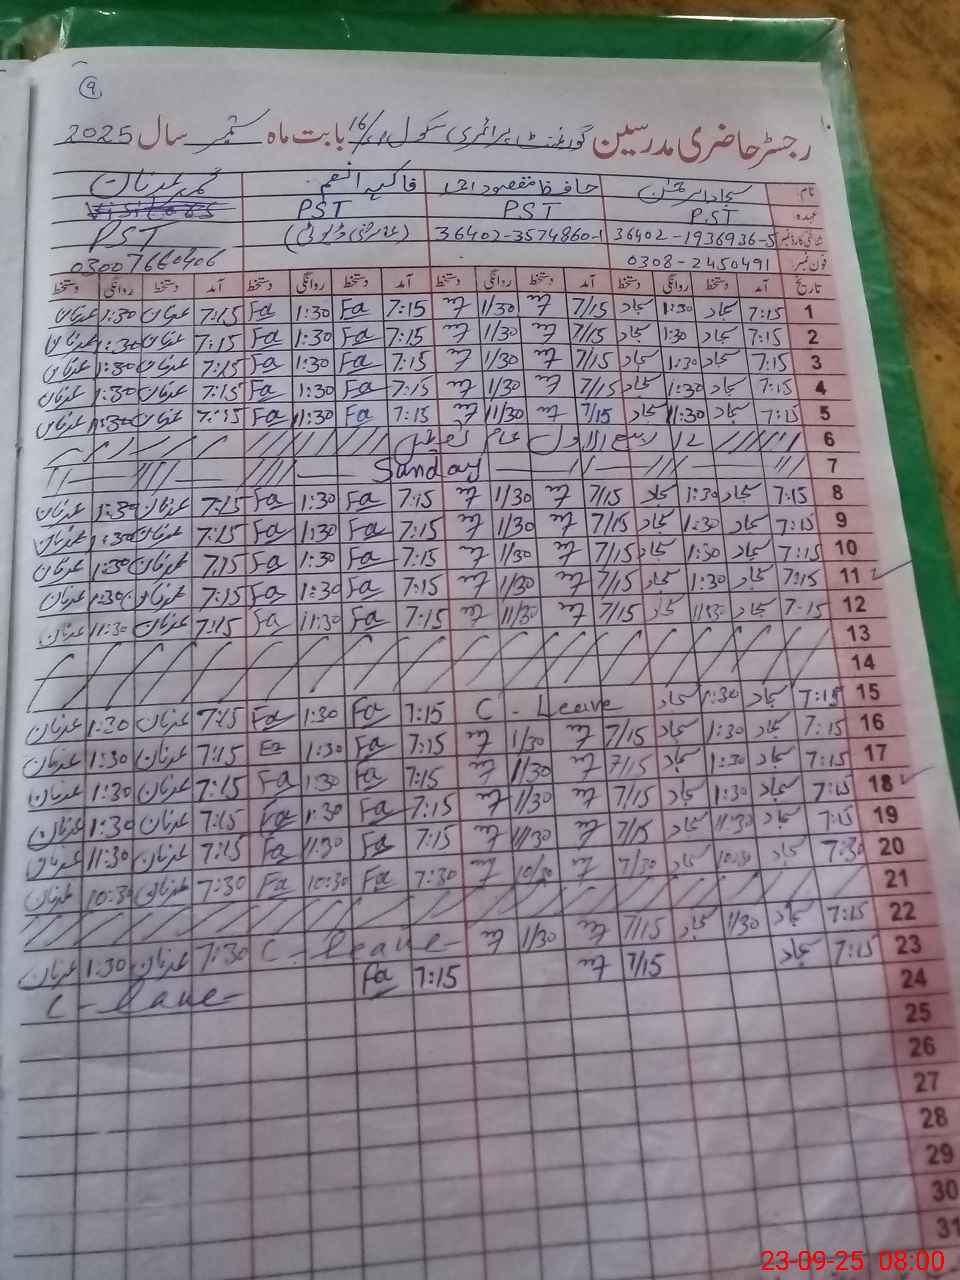 9
رجسٹر حاضری مدرسین گورنمنٹ پرائمری سکول 16/ بابت ماہ ستمبر سال 2025
نام حافظ مقصود احمد
عہدہ PST PST PST
36402-1936936-5 36402-3574860-1 PST
فون نمبر 0308-2450491 03007660406
تاریخ آمد دستخط روانگی دستخط آمد دستخط روانگی دستخط آمد دستخط روانگی دستخط آمد دستخط روانگی دستخط
1 7:15 سجاد 1:30 سجاد 7/15 1/30 7:15 Fa 1:30 Fa 7:15 عدنان 1:30 عدنان
2 7:15 سجاد 1:30 سجاد 7/15 1/30 7:15 Fa 1:30 Fa 7:15 عدنان 1:30 عدنان
3 7:15 سجاد 1:30 سجاد 7/15 1/30 7:15 Fa 1:30 Fa 7:15 عدنان 1:30 عدنان
4 7:15 سجاد 1:30 سجاد 7/15 1/30 7:15 Fa 1:30 Fa 7:15 عدنان 1:30 عدنان
5 7:15 سجاد 11:30 سجاد 7/15 11/30 7:15 Fa 11:30 Fa 7:15 عدنان 11:30 عدنان
6 12 ربیع الاول عام تعطیل
7 Sanday
8 7:15 سجاد 1:30 سجاد 7/15 1/30 7:15 Fa 1:30 Fa 7:15 عدنان 1:30 عدنان
9 7:15 سجاد 1:30 سجاد 7/15 1/30 7:15 Fa 1:30 Fa 7:15 عدنان 1:30 عدنان
10 7:15 سجاد 1:30 سجاد 7/15 1/30 7:15 Fa 1:30 Fa 7:15 عدنان 1:30 عدنان
11 7:15 سجاد 1:30 سجاد 7/15 1/30 7:15 Fa 1:30 Fa 7:15 عدنان 1:30 عدنان
12 7:15 سجاد 11:30 سجاد 7/15 11/30 7:15 Fa 11:30 Fa 7:15 عدنان 11:30 عدنان
13
14
15 7:15 سجاد 1:30 سجاد C - Leave 7:15 Fa 1:30 Fa 7:15 عدنان 1:30 عدنان
16 7:15 سجاد 1:30 سجاد 7/15 1/30 7:15 Fa 1:30 Fa 7:15 عدنان 1:30 عدنان
17 7:15 سجاد 1:30 سجاد 7/15 1/30 7:15 Fa 1:30 Fa 7:15 عدنان 1:30 عدنان
18 7:15 سجاد 1:30 سجاد 7/15 1/30 7:15 Fa 1:30 Fa 7:15 عدنان 1:30 عدنان
19 7:15 سجاد 11:30 سجاد 7/15 11/30 7:15 Fa 11:30 Fa 7:15 عدنان 11:30 عدنان
20 7:30 سجاد 10:30 سجاد 7/30 10/30 7:30 Fa 10:30 Fa 7:30 عدنان 10:30 عدنان
21
22 7:15 سجاد 1/30 سجاد 7/15 1/30 C - leave 7:30 عدنان 1:30 عدنان
23 7:15 سجاد 7/15 7:15 Fa C - lave
24
25
26
27
28
29
30
31
23-09-25 08:00